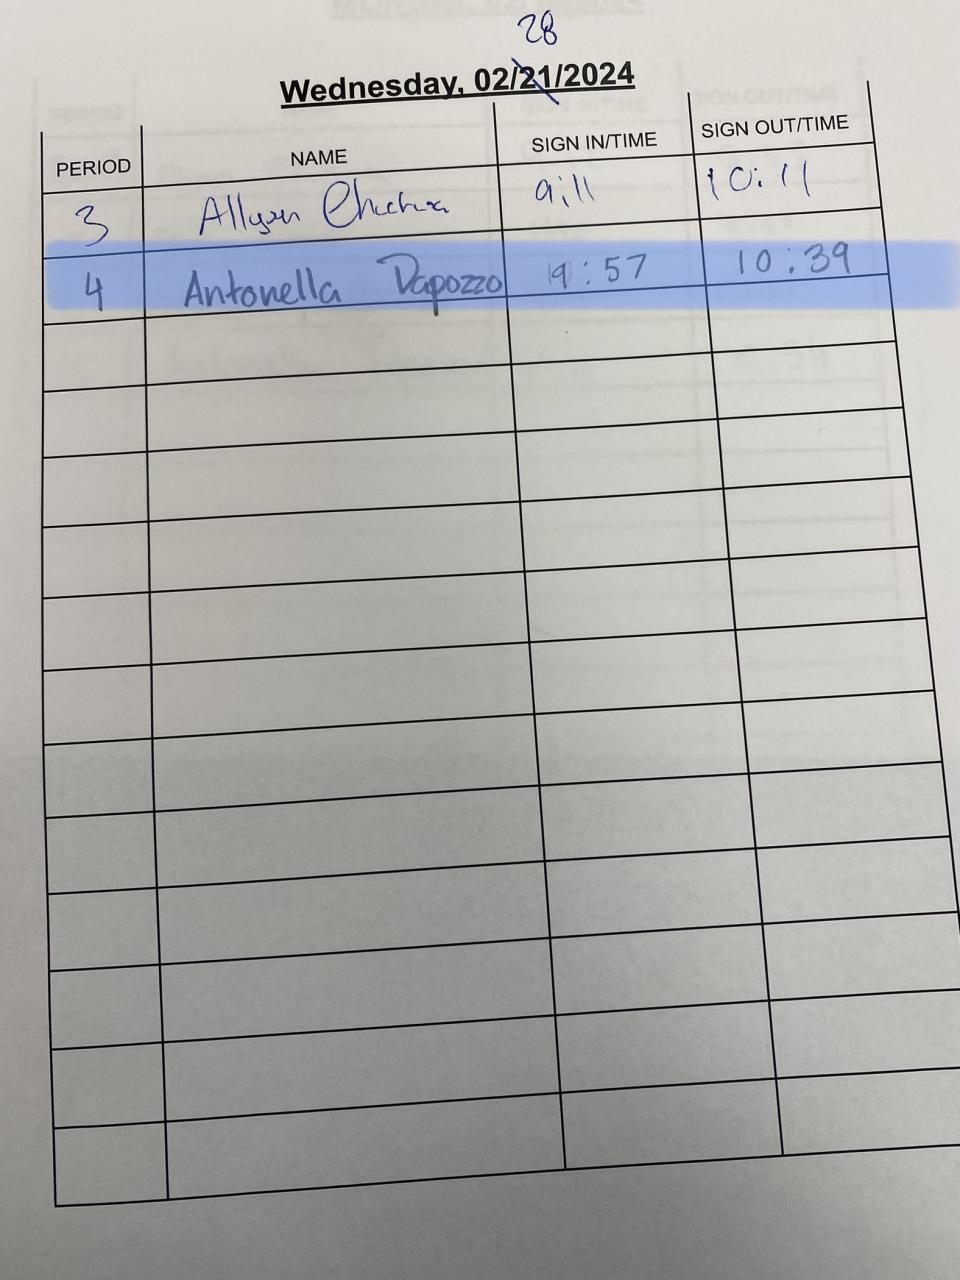 28
Wednesday, 02/21/2024
PERIOD NAME SIGN IN/TIME SIGN OUT/TIME
3 Allyson 9:11 10:11
4 Antonella Dapozzo 9:57 10:39